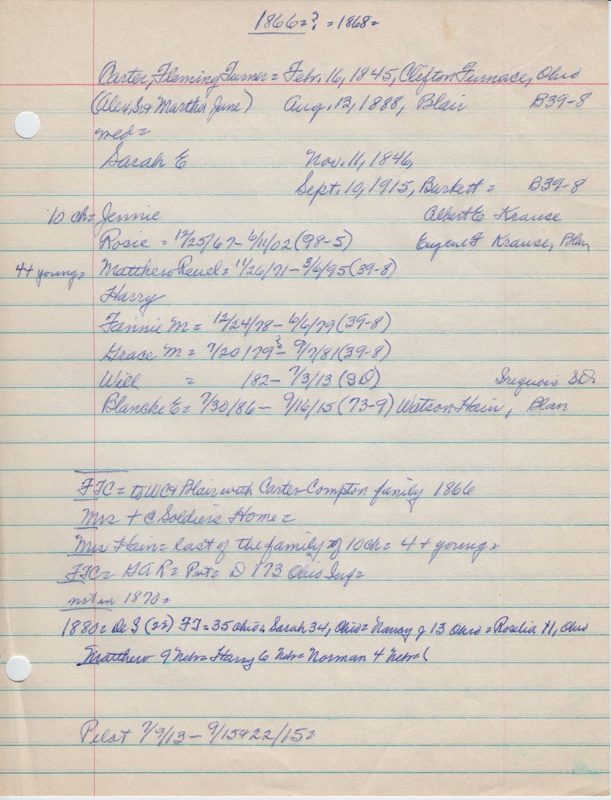 1866=? = 1868=
Carter, Fleming Turner = Febr. 16, 1845, Clifton Furnace, Ohio
(Alex, Sr & Martha Jane) Aug. 12, 1888, Blair B39-8
med=
Sarah E Nov. 11, 1846,
Sept. 10, 1915, Burkett = B39-8
10 ch= Jennie Albert E Krause
Rosie = 12/25/67 - 6/11/02 (98-5) Eugene F Krause, Blair
4 + young= Matthew Reuel = 11/26/71 - 3/6/95 (39-8)
Harry
Fannie M = 12/24/78 - 6/6/79 (39-8)
Grace M = 7/20/79? - 9/7/81 (39-8)
Will = /82 - 7/3/13 (SD) Iroquois SD=
Blanche E = 7/30/86 - 9/16/15 (73-9) Watson Hain, Blair
FTC = to WC & Blair with Carter-Compton family 1866
Mrs + C Soldiers Home=
Mrs Hain = last of the family of 10 ch = 4 + young=
FTC = GAR = Pvt = D 173 Ohio Inf=
not in 1870=
1880 = De S (22) FT = 35 Ohio = Sarah 34, Ohio = Nancy J 13 Ohio = Roselia 11, Ohio
Matthew 9 Nebr = Harry 6 Nebr = Norman 4 Nebr (
Pilot 7/9/13 - 9/15 & 22/15=